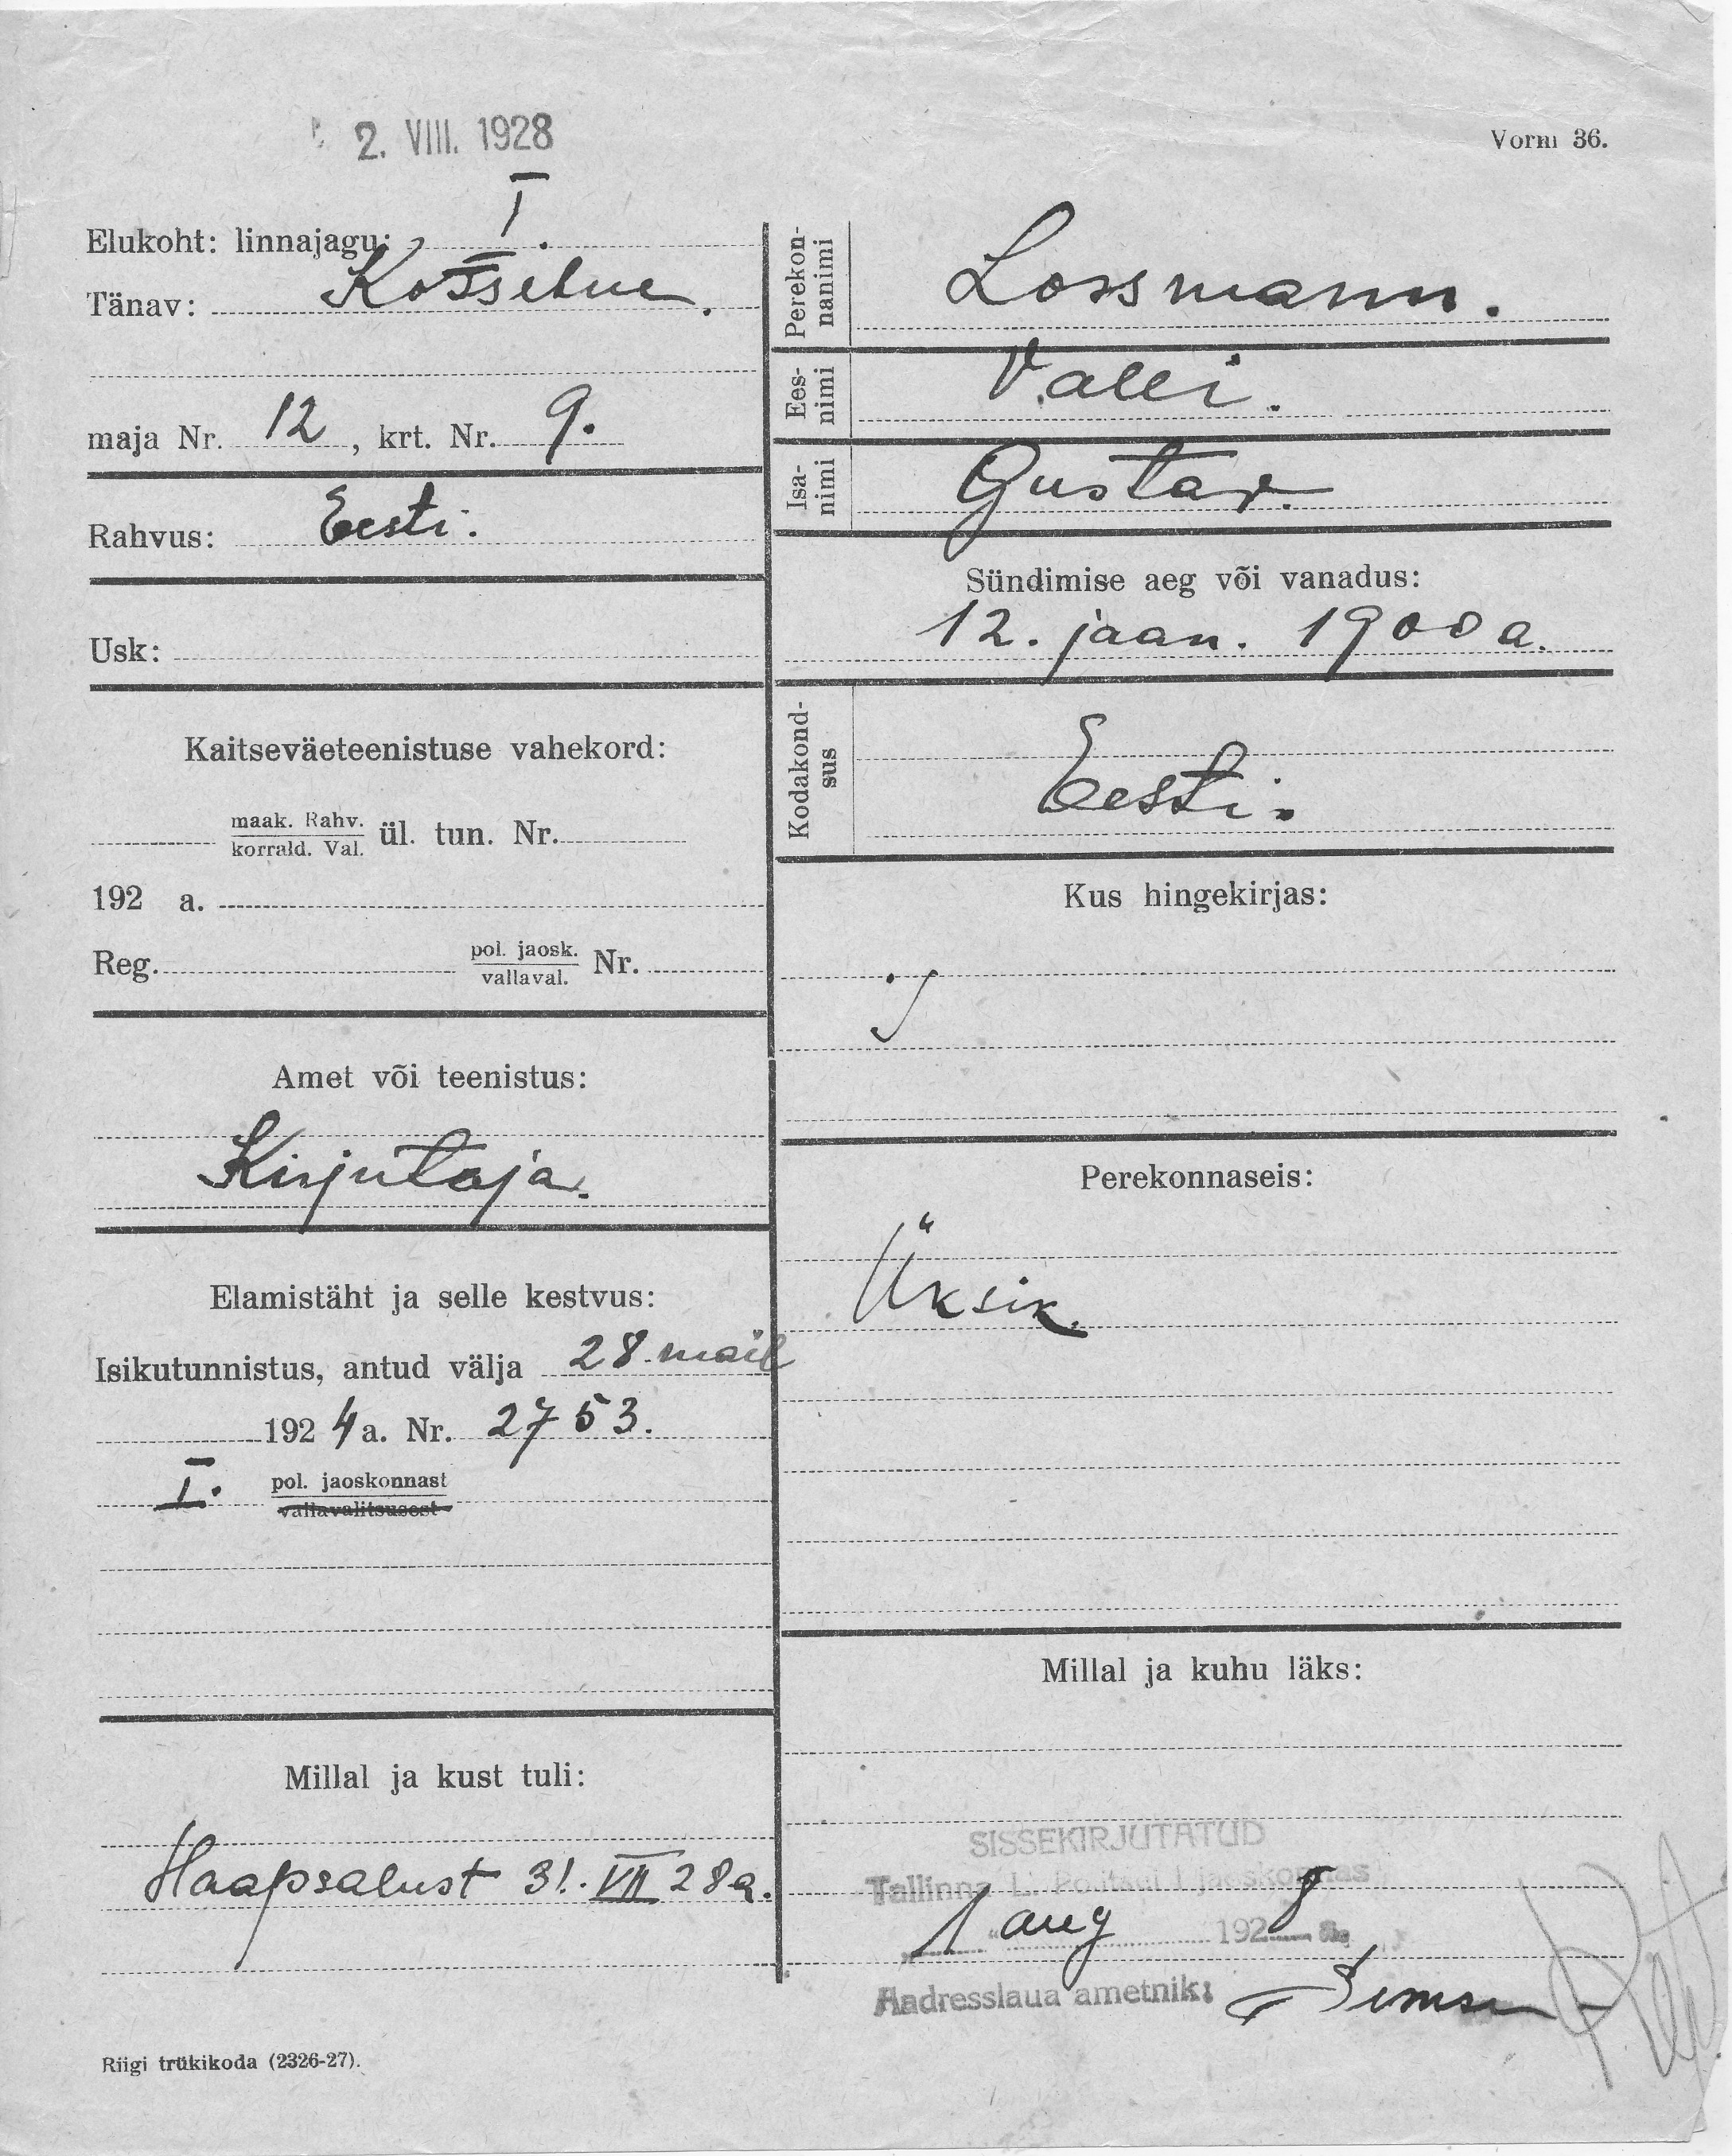 2. VIII. 1928
Vorm 36.
Elukoht: linnajagu: I.
Tänav:
maja Nr. 12, krt. Nr. 9.
Rahvus: Eesti.
Usk:
Kaitseväeteenistuse vahekord:
maak. Rahv.
korrald. Val. ül. tun. Nr.
192 a.
Reg. pol. jaosk.
vallaval. Nr.
Amet või teenistus:
Kirjutaja.
Elamistäht ja selle kestvus:
Isikutunnistus, antud välja 28. mail
192 4 a. Nr. 2753.
I. pol. jaoskonnast
vallavalitsusest
Millal ja kust tuli:
Haapsalust 31. VII 28 a.
Riigi trükikoda (2326-27).
Perekon-
nanimi
Lossmann.
Ees-
nimi
Valli.
Isa-
nimi
Gustav.
Sündimise aeg või vanadus:
12. jaan. 1900 a.
Kodakond-
sus
Eesti.
Kus hingekirjas:
Perekonnaseis:
Üksik.
Millal ja kuhu läks:
SISSEKIRJUTATUD
Tallinna L. Politsei I jaoskonnas
1 aug 192 8 a.
Aadresslaua ametnik: